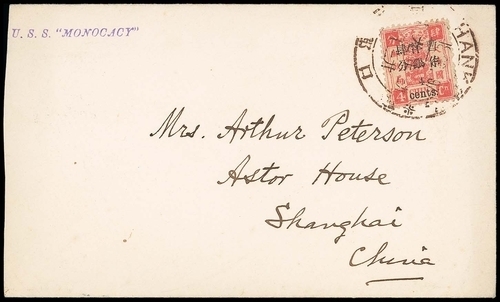 U. S. S. "MONOCACY"
SHANG
cents.
Mrs. Arthur Peterson
Astor House
Shanghai
China